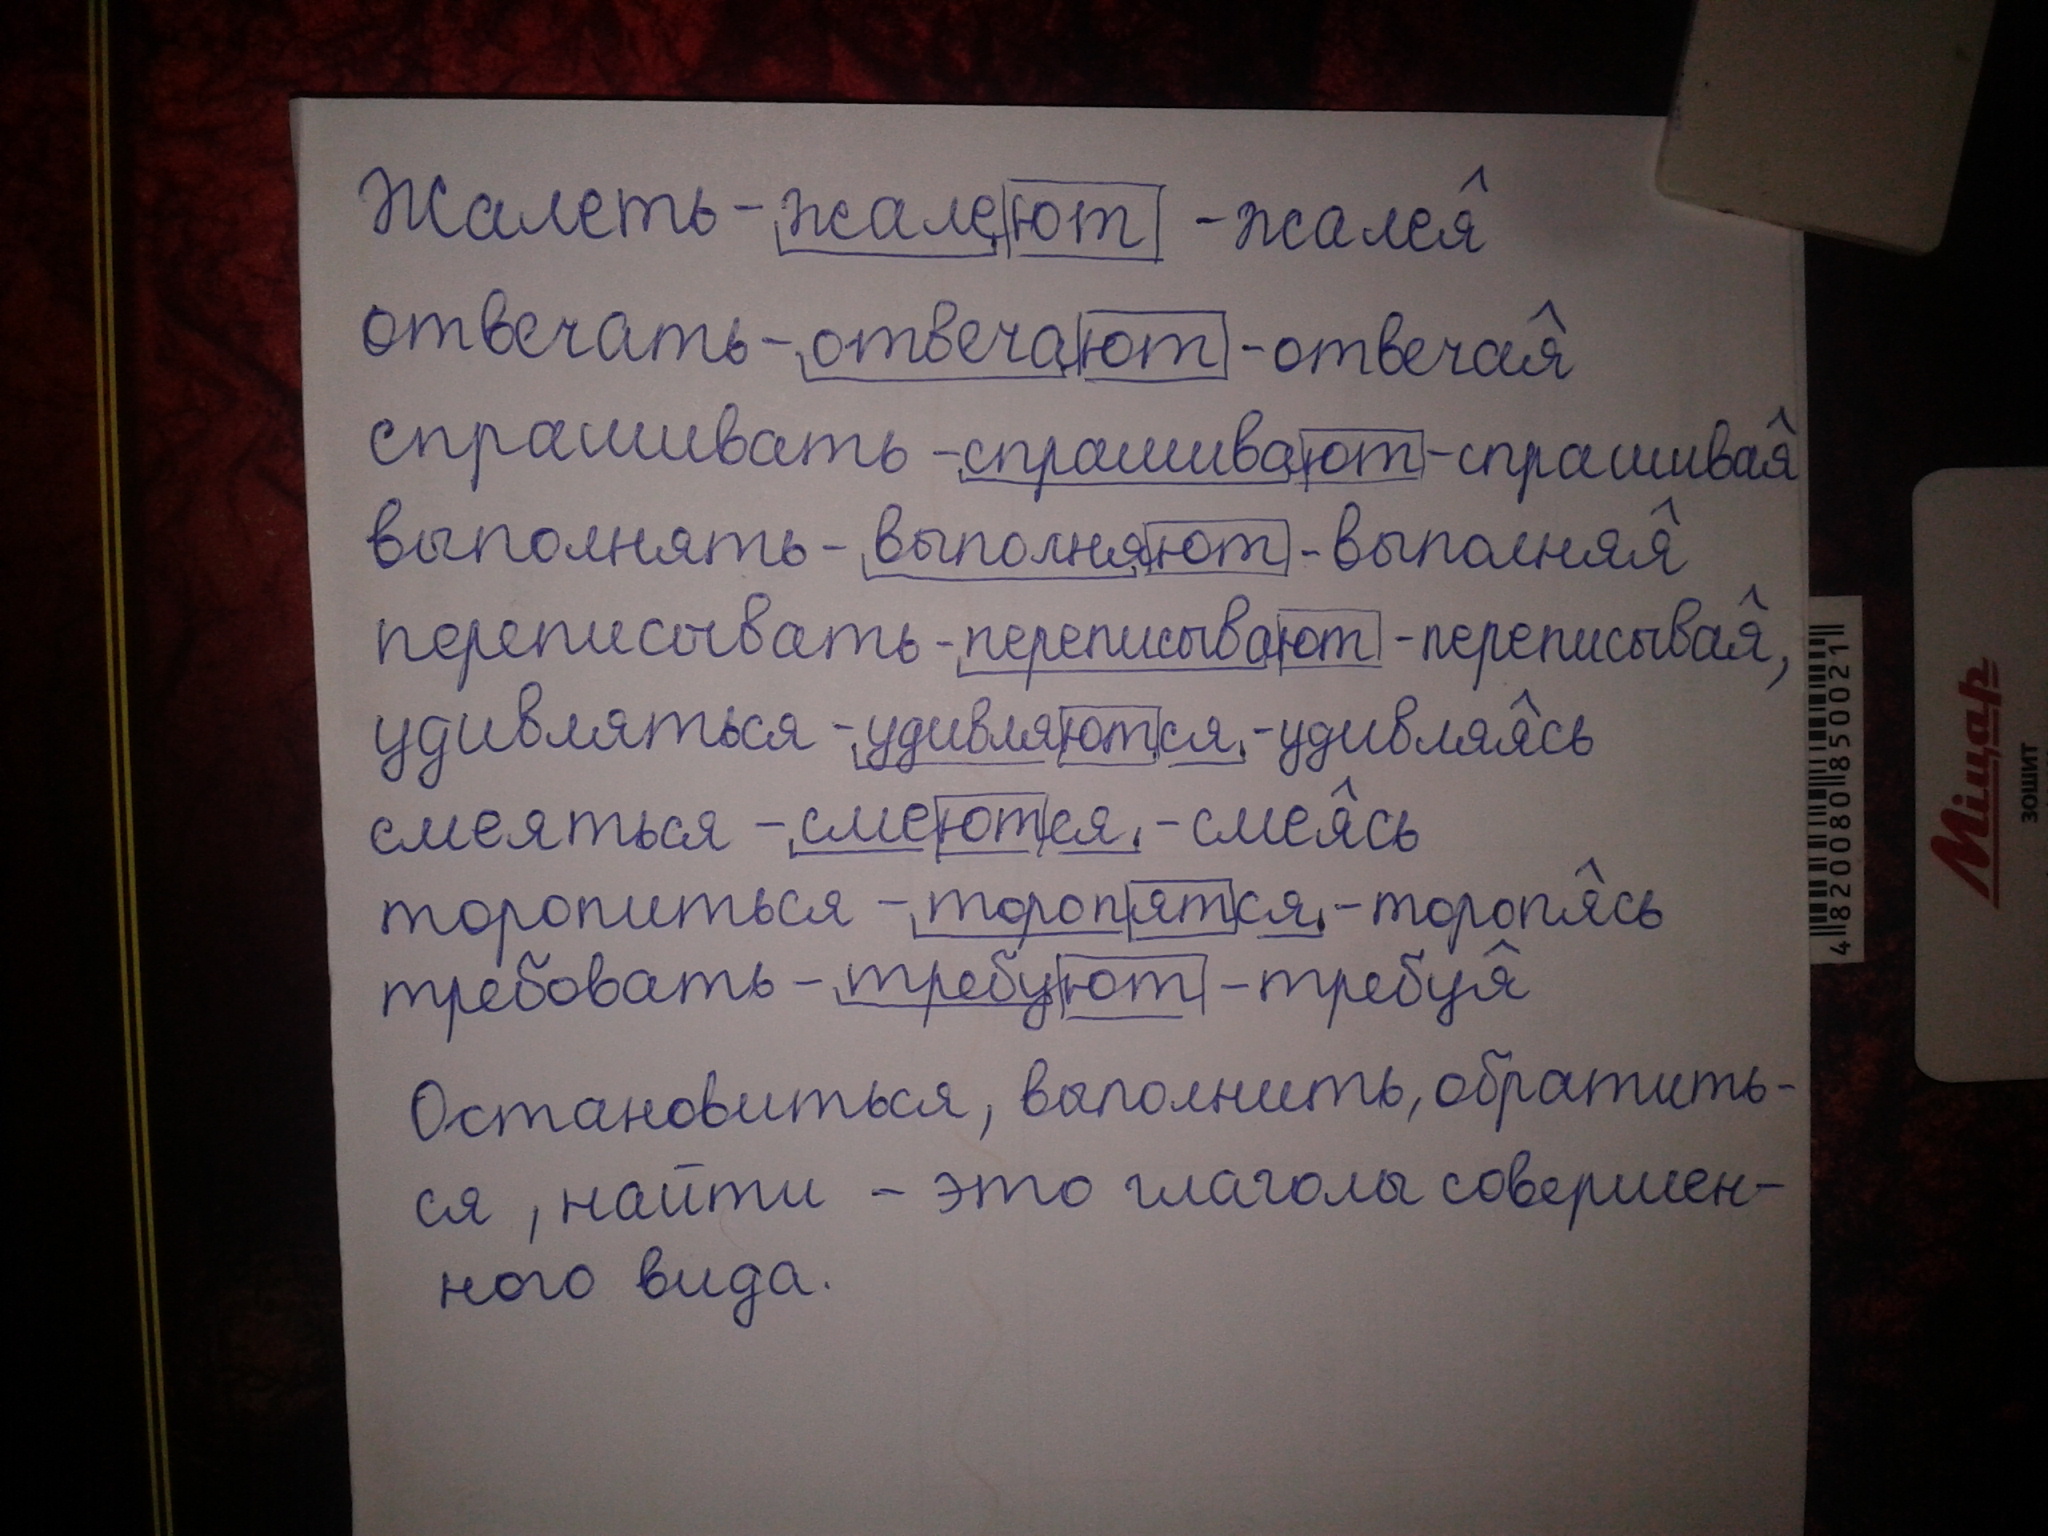 Жалеть - жалеют - жалея
отвечать - отвечают - отвечая
спрашивать - спрашивают - спрашивая
выполнять - выполняют - выполняя
переписывать - переписывают - переписывая,
удивляться - удивляются - удивляясь
смеяться - смеются - смеясь
торопиться - торопятся - торопясь
требовать - требуют - требуя
Остановиться, выполнить, обратить-
ся, найти - это глаголы совершен-
ного вида.
4820080850021
Міцар
зошит